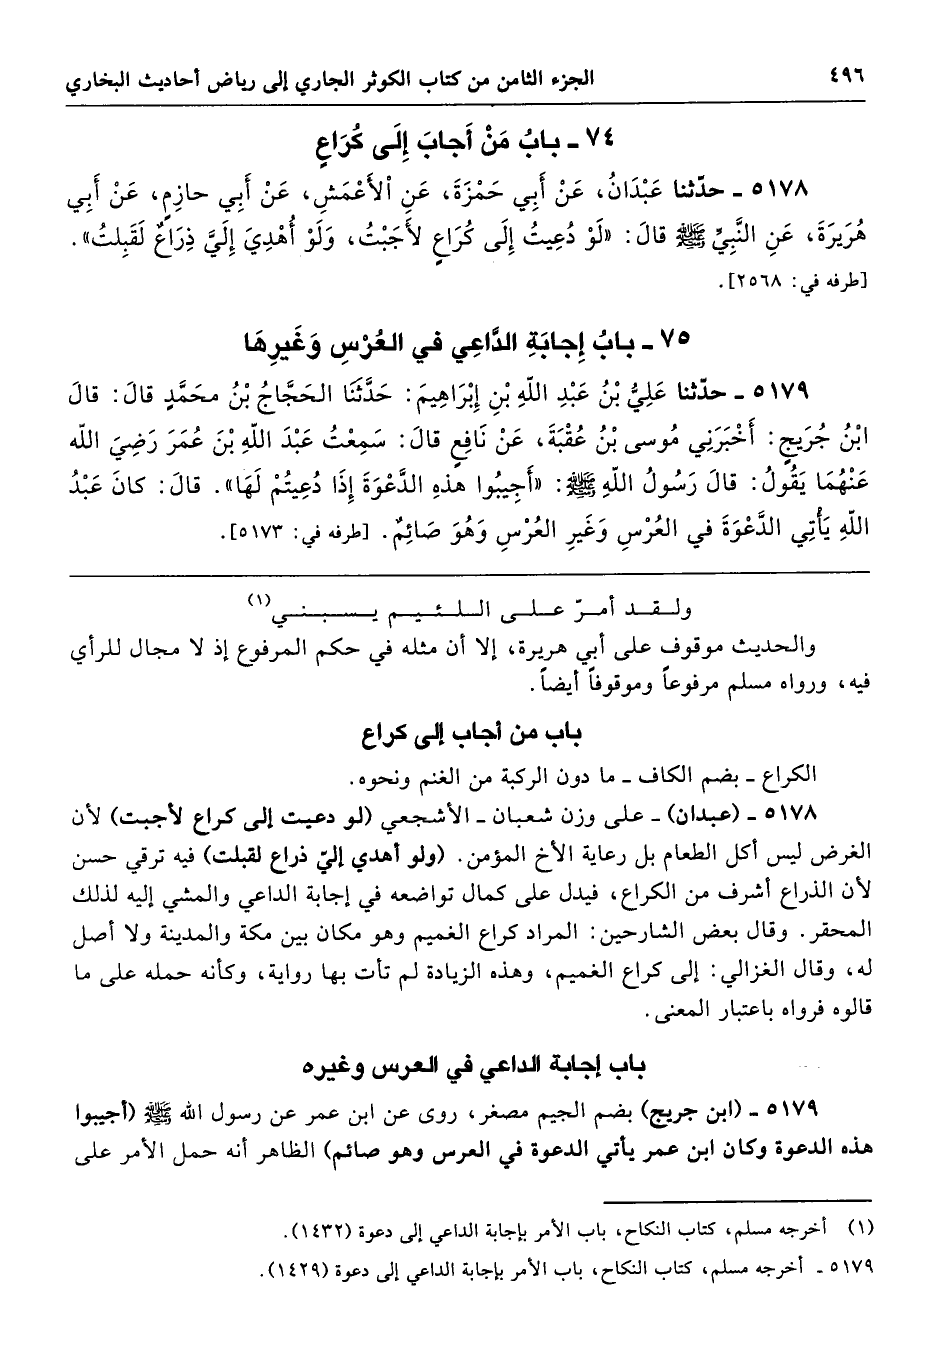 ٤٩٦ الجزء الثامن من كتاب الكوثر الجاري إلى رياض أحاديث البخاري
٧٤ ـ بابُ مَنْ أَجابَ إِلَى كُرَاعٍ
٥١٧٨ ـ حدّثنا عَبْدَانُ، عَنْ أَبِي حَمْزَةَ، عَنِ الأَعْمَشِ، عَنْ أَبِي حازِمٍ، عَنْ أَبِي
هُرَيرَةَ، عَنِ النَّبِيِّ ﷺ قالَ: «لَوْ دُعِيتُ إِلَى كُرَاعٍ لأَجَبْتُ، وَلَوْ أُهْدِيَ إِلَيَّ ذِرَاعٌ لَقَبِلتُ».
[طرفه في: ٢٥٦٨].
٧٥ ـ بابُ إِجابَةِ الدَّاعِي في العُرْسِ وَغَيرِهَا
٥١٧٩ ـ حدّثنا عَلِيُّ بْنُ عَبْدِ اللّهِ بْنِ إِبْرَاهِيمَ: حَدَّثَنَا الحَجَّاجُ بْنُ محَمَّدٍ قالَ: قالَ
ابْنُ جُرَيجٍ: أَخْبَرَنِي مُوسى بْنُ عُقْبَةَ، عَنْ نَافِعٍ قالَ: سَمِعْتُ عَبْدَ اللّهِ بْنَ عُمَرَ رَضِيَ اللّه
عَنْهُمَا يَقُولُ: قالَ رَسُولُ اللّهِ ﷺ: «أَجِيبُوا هذهِ الدَّعْوَةَ إِذَا دُعِيتُمْ لَهَا». قالَ: كانَ عَبْدُ
اللّهِ يَأْتِي الدَّعْوَةَ في العُرْسِ وَغَيرِ العُرْسِ وَهُوَ صَائِمٌ. [طرفه في: ٥١٧٣].
ولـقـد أمـرّ عـلـى الـلـئـيـم يـسـبـنـي(١)
والحديث موقوف على أبي هريرة، إلا أن مثله في حكم المرفوع إذ لا مجال للرأي
فيه، ورواه مسلم مرفوعاً وموقوفاً أيضاً.
باب من أجاب إلى كراع
الكراع ـ بضم الكاف ـ ما دون الركبة من الغنم ونحوه.
٥١٧٨ ـ (عبدان) ـ على وزن شعبان ـ الأشجعي (لو دعيت إلى كراع لأجبت) لأن
الغرض ليس أكل الطعام بل رعاية الأخ المؤمن. (ولو أهدي إليّ ذراع لقبلت) فيه ترقي حسن
لأن الذراع أشرف من الكراع، فيدل على كمال تواضعه في إجابة الداعي والمشي إليه لذلك
المحقر. وقال بعض الشارحين: المراد كراع الغميم وهو مكان بين مكة والمدينة ولا أصل
له، وقال الغزالي: إلى كراع الغميم، وهذه الزيادة لم تأت بها رواية، وكأنه حمله على ما
قالوه فرواه باعتبار المعنى.
باب إجابة الداعي في العرس وغيره
٥١٧٩ ـ (ابن جريج) بضم الجيم مصغر، روى عن ابن عمر عن رسول الله ﷺ (أجيبوا
هذه الدعوة وكان ابن عمر يأتي الدعوة في العرس وهو صائم) الظاهر أنه حمل الأمر على
(١) أخرجه مسلم، كتاب النكاح، باب الأمر بإجابة الداعي إلى دعوة (١٤٣٢).
٥١٧٩ ـ أخرجه مسلم، كتاب النكاح، باب الأمر بإجابة الداعي إلى دعوة (١٤٢٩).